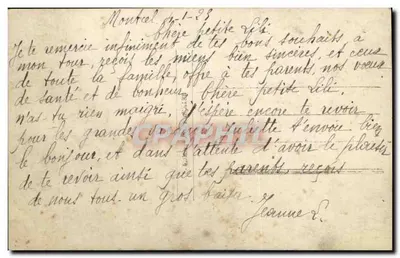 Montcel 1-23
Chère petite Lili
Je te remercie infiniment de tes bons souhaits à
mon tour, reçois les miens bien sincères, et ceux
de toute la famille, offre à tes parents, nos vœux
de santé et de bonheur. Chère petite Lili,
n'as tu rien maigri, j'espère encore te revoir
pour les grandes Juliette t'envoie bien
le bonjour, et dans l'attente d'avoir le plaisir
de te revoir ainsi que tes parents reçois
de nous tous un gros baiser
Jeanne L.